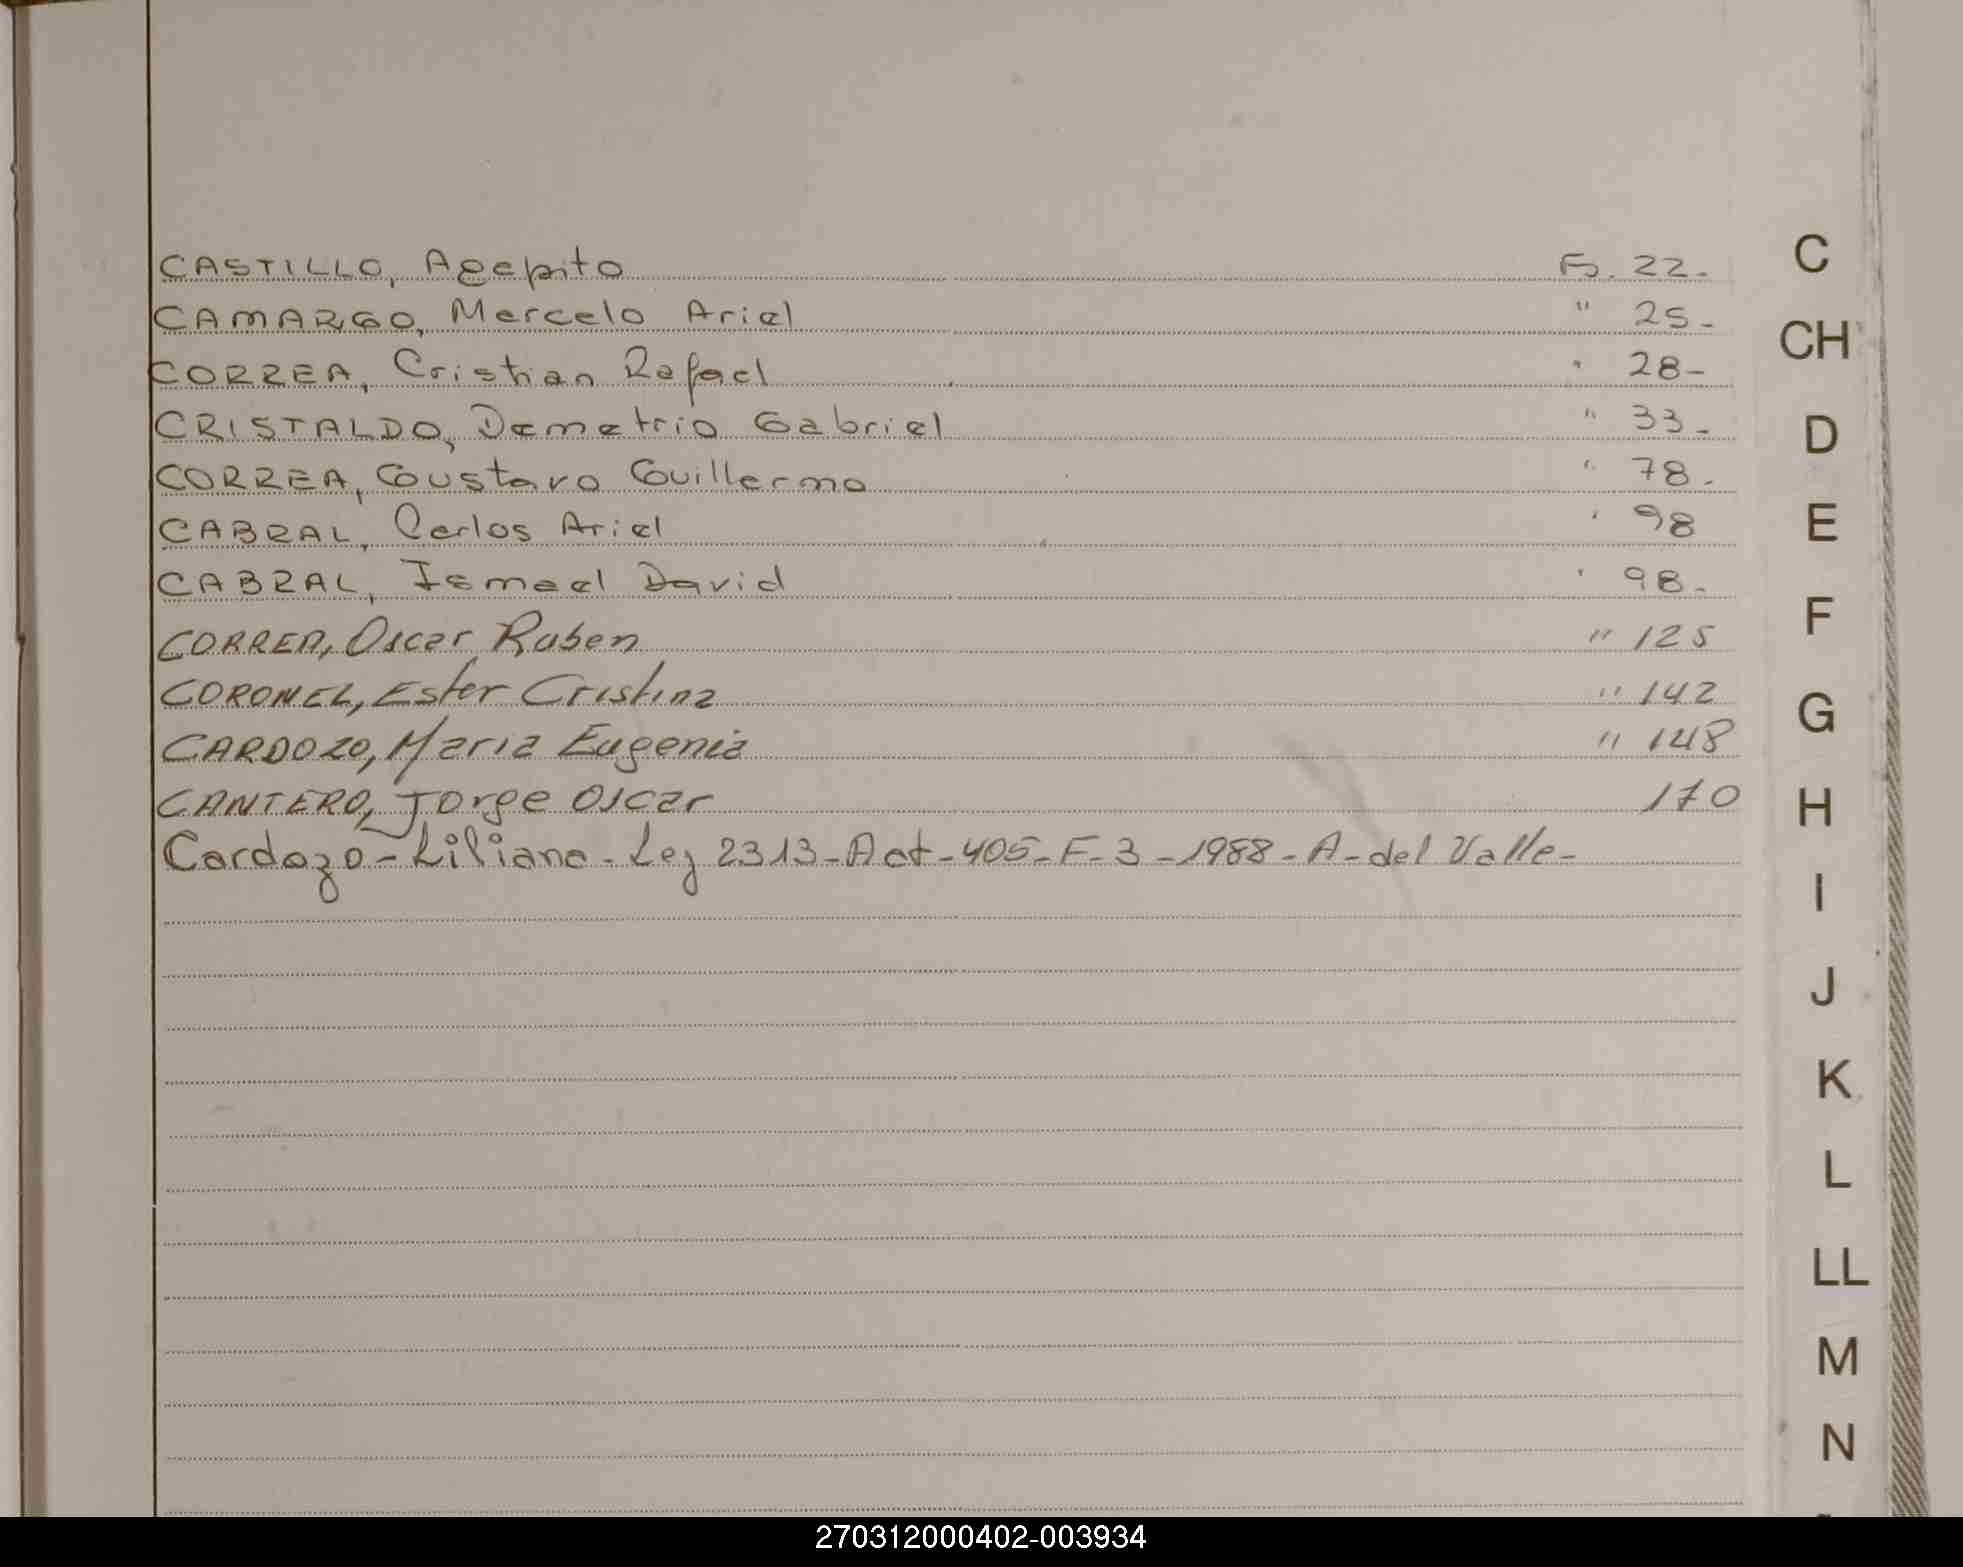 CASTILLO, Agepito Fs. 22.
CAMARGO, Marcelo Ariel " 25-
CORREA, Cristian Rafael " 28-
CRISTALDO, Demetrio Gabriel " 33-
CORREA, Gustavo Guillermo " 78.
CABRAL, Carlos Ariel " 98
CABRAL, Ismael David " 98-
CORREA, Oscar Ruben " 125
CORONEL, Ester Cristina " 142
CARDOZO, Maria Eugenia " 148
CANTERO, Jorge Oscar 170
Cardozo-Liliana. Leg 2313-Act-405-F-3-1988-A-del Valle-
C
CH
D
E
F
G
H
I
J
K
L
LL
M
N
270312000402-003934